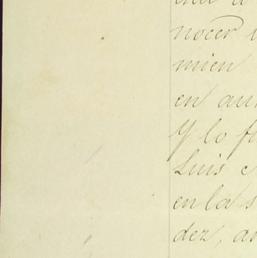 nocer
mien
en au
Y lo fi
Luis
en la s
dez, a